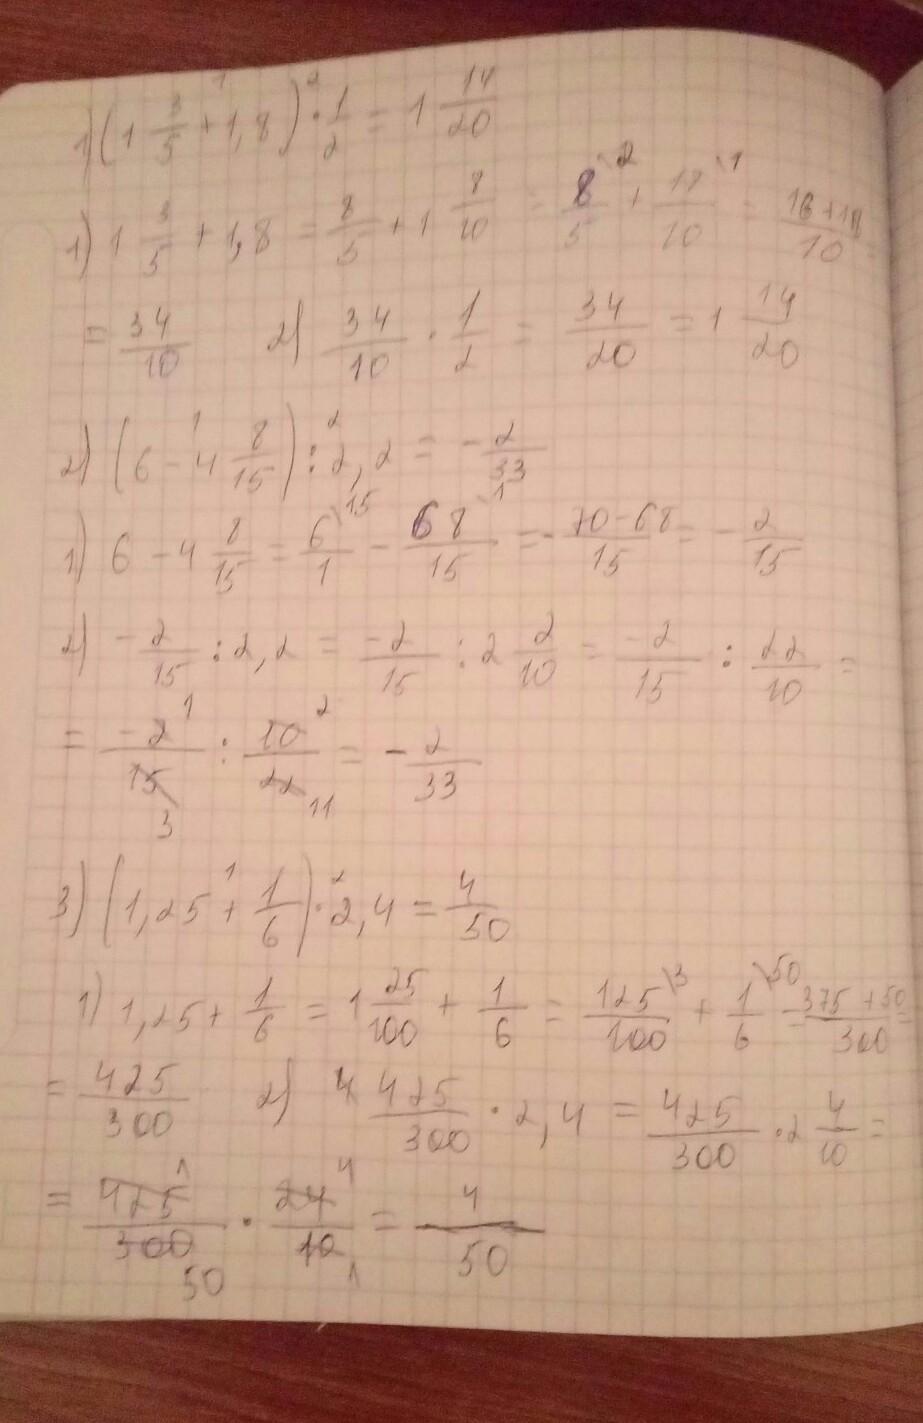 1) (1 3/5 + 1,8) · 1/2 = 1 14/20
1) 1 3/5 + 1,8 = 8/5 + 1 8/10 = 8/5 \2 + 18/10 \1 = 16+18/10 =
= 34/10 2) 34/10 · 1/2 = 34/20 = 1 14/20
2) (6 - 4 8/15) : 2,2 = - 2/33
1) 6 - 4 8/15 = 6/1 \15 - 68/15 \1 = - 70-68/15 = - 2/15
2) - 2/15 : 2,2 = -2/15 : 2 2/10 = -2/15 : 22/10 =
= -2/15 : 10/22 = - 2/33
3) (1,25 + 1/6) · 2,4 = 4/50
1) 1,25 + 1/6 = 1 25/100 + 1/6 = 125/100 \3 + 1/6 \50 = 375+50/300 =
= 425/300 2) 425/300 · 2,4 = 425/300 · 2 4/10 =
= 425/300 · 24/10 = 4/50